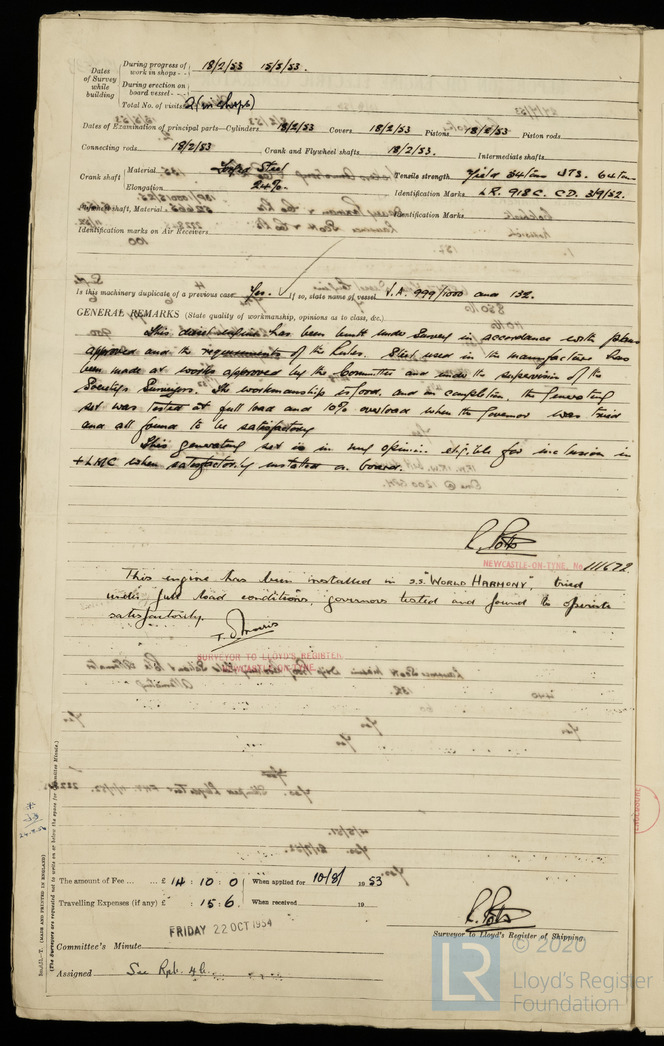 Dates of Survey while building
During progress of work in shops - - 18/2/53 15/5/53.
During erection on board vessel - - -
Total No. of visits 2 (in shops)
Dates of Examination of principal parts—Cylinders 18/2/53 Covers 18/2/53 Pistons 18/2/53 Piston rods
Connecting rods 18/2/53 Crank and Flywheel shafts 18/2/53. Intermediate shafts
Crank shaft Material Forged Steel Tensile strength Yield 34 tons UTS. 64 tons
Elongation 24%. Identification Marks LR. 918 C. C.D. 3/9/52.
shaft, Material Identification Marks
Identification marks on Air Receivers
Is this machinery duplicate of a previous case Yes. If so, state name of vessel V.A. 999/1000 and 132.
GENERAL REMARKS (State quality of workmanship, opinions as to class, &c.)
This diesel engine has been built under Survey in accordance with plans
approved and the requirements of the Rules. Steel used in the manufacture has
been made at works approved by the Committee and under the supervision of the
Society's Surveyors. The workmanship is good, and on completion, the generating
set was tested at full load and 10% overload when the Governor was tried
and all found to be satisfactory
This generating set is in my opinion eligible for inclusion in
+LMC when satisfactorily installed on board.
R. Potts
NEWCASTLE-ON-TYNE, No 111672
This engine has been installed in S.S. "WORLD HARMONY", tried
under full load conditions, governors tested and found to operate
satisfactorily.
T. D. Morris
SURVEYOR TO LLOYD'S REGISTER
NEWCASTLE-ON-TYNE
(The Surveyors are requested not to write on or below the space for Committee Minute.)
(MADE AND PRINTED IN ENGLAND)
The amount of Fee ... ... £ 14 : 10 : 0 When applied for 10/8/ 1953
Travelling Expenses (if any) £ : 15 : 6 When received 19
R. Potts
Surveyor to Lloyd's Register of Shipping
FRIDAY 22 OCT 1954
Committee's Minute
Assigned See Rpt. 4b.
© 2020
LR
Lloyd's Register
Foundation